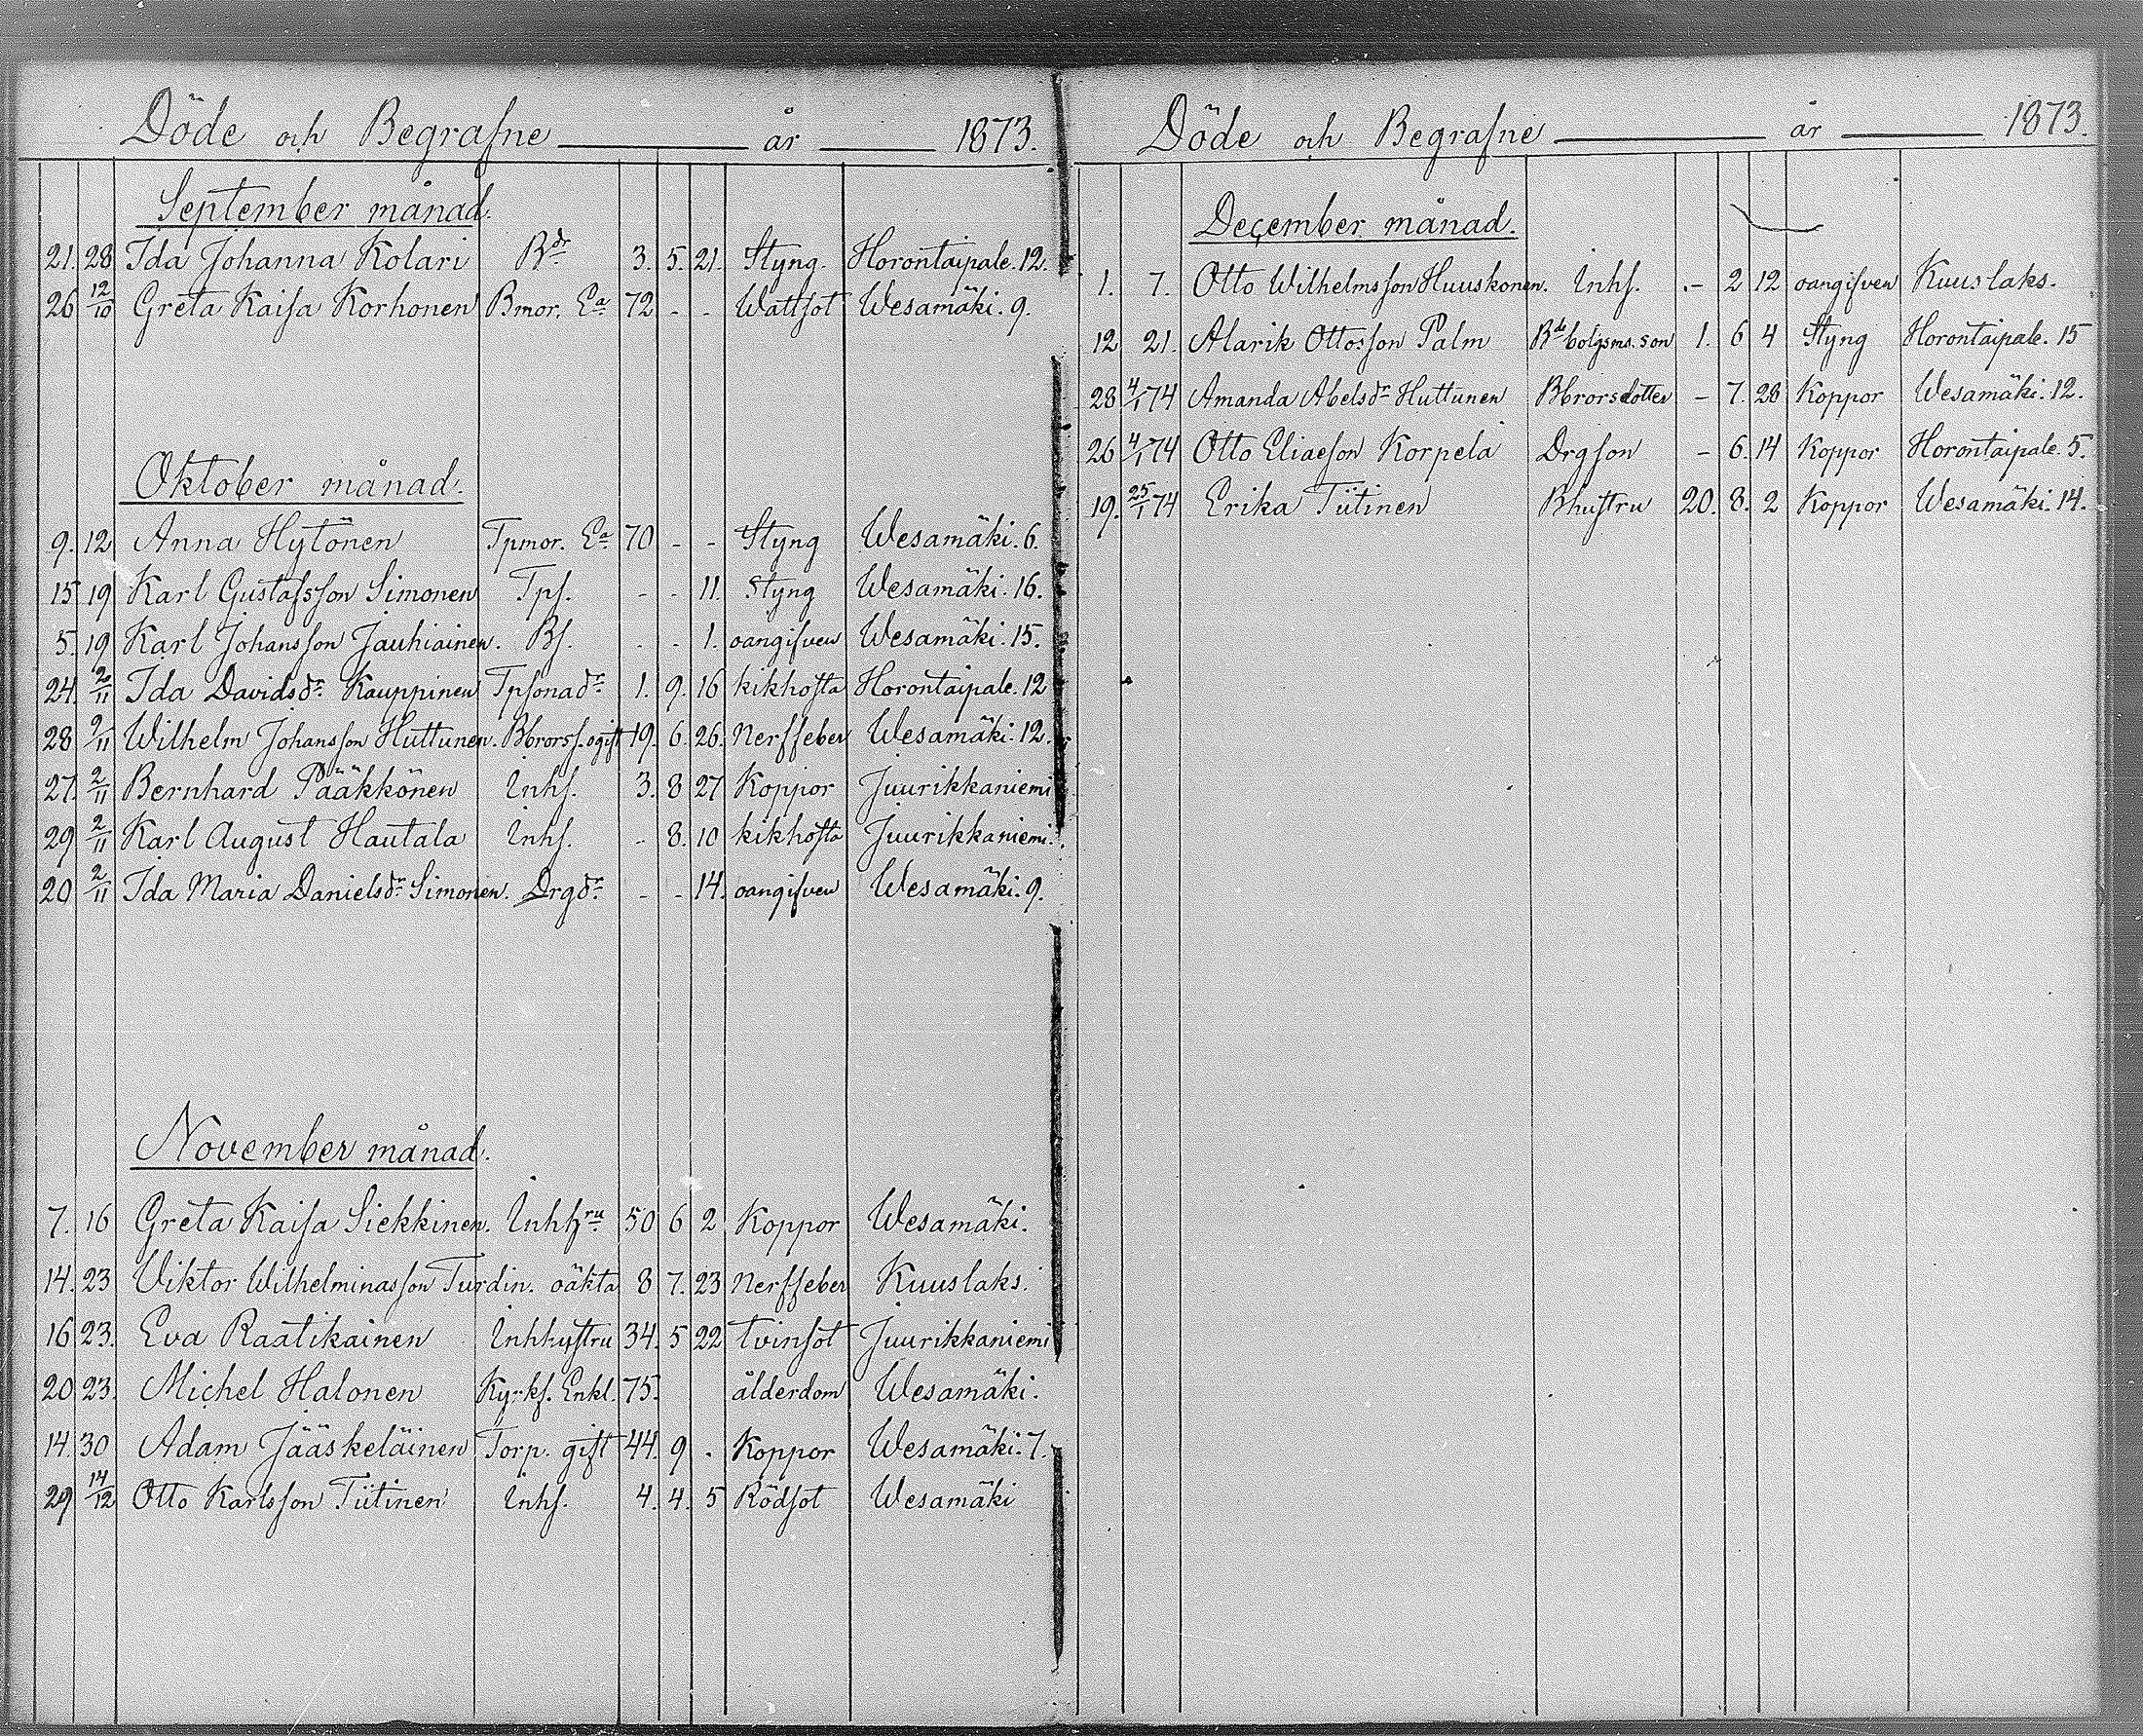 Döde och Begrafne år 1873.
September månad.
21. 28 Ida Johanna Kolari Bdr 3. 5. 21. Styng. Horontaipale. 12.
26 12/10 Greta Kaisa Korhonen Bmor. Ea 72 - - Wattsot Wesamäki. 9.
Oktober månad.
9. 12 Anna Hytönen Tpmor. Ea 70 - - Styng Wesamäki. 6.
15 19 Karl Gustafsson Simonen Tps. - - 11. Styng Wesamäki. 16.
5. 19 Karl Johansson Jauhiainen. Bs. - - 1. oangifven Wesamäki. 15.
24. 2/11 Ida Davidsdr Kauppinen Tpsonadr 1. 9. 16 kikhosta Horontaipale. 12
28 2/11 Wilhelm Johansson Huttunen. Bbrorss. ogift 19. 6. 26. Nerffeber Wesamäki. 12.
27. 2/11 Bernhard Pääkkönen Inhs. 3. 8 27 Koppor Juurikkaniemi
29 2/11 Karl August Hautala Inhs. - 8. 10 kikhosta Juurikkaniemi.
20 2/11 Ida Maria Danielsdr Simonen. Drgdr - - 14. oangifven Wesamäki. 9.
November månad.
7. 16 Greta Kaisa Siekkinen. Inhhru 50 6 2 Koppor Wesamäki.
14. 23 Viktor Wilhelminasson Turdin. oäkta 8 7. 23 Nerffeber Kuuslaks.
16 23. Eva Raatikainen Inhhustru 34. 5 22 tvinsot Juurikkaniemi
20 23. Michel Halonen Kyrks. Enkl. 75. ålderdom Wesamäki.
14. 30 Adam Jääskeläinen Torp. gift 44. 9 . Koppor Wesamäki. 7.
29 14/12 Otto Karlsson Tiitinen Inhs. 4. 4. 5 Rödsot Wesamäki
Döde och Begrafne år 1873.
December månad.
1. 7. Otto Wilhelmsson Huuskonen. Inhs. - 2 12 oangifven Kuuslaks.
12 21. Alarik Ottosson Palm Rdebolgsms. son 1. 6 4 Styng Horontaipale. 15
28 4/1 74 Amanda Abelsdr Huttunen Bbrorsdotter - 7. 28 Koppor Wesamäki. 12.
26 4/1 74 Otto Eliaeson Korpela Drgson - 6. 14 Koppor Horontaipale. 5.
19. 25/1 74 Erika Tiitinen Bhustru 20. 8. 2 Koppor Wesamäki. 14.